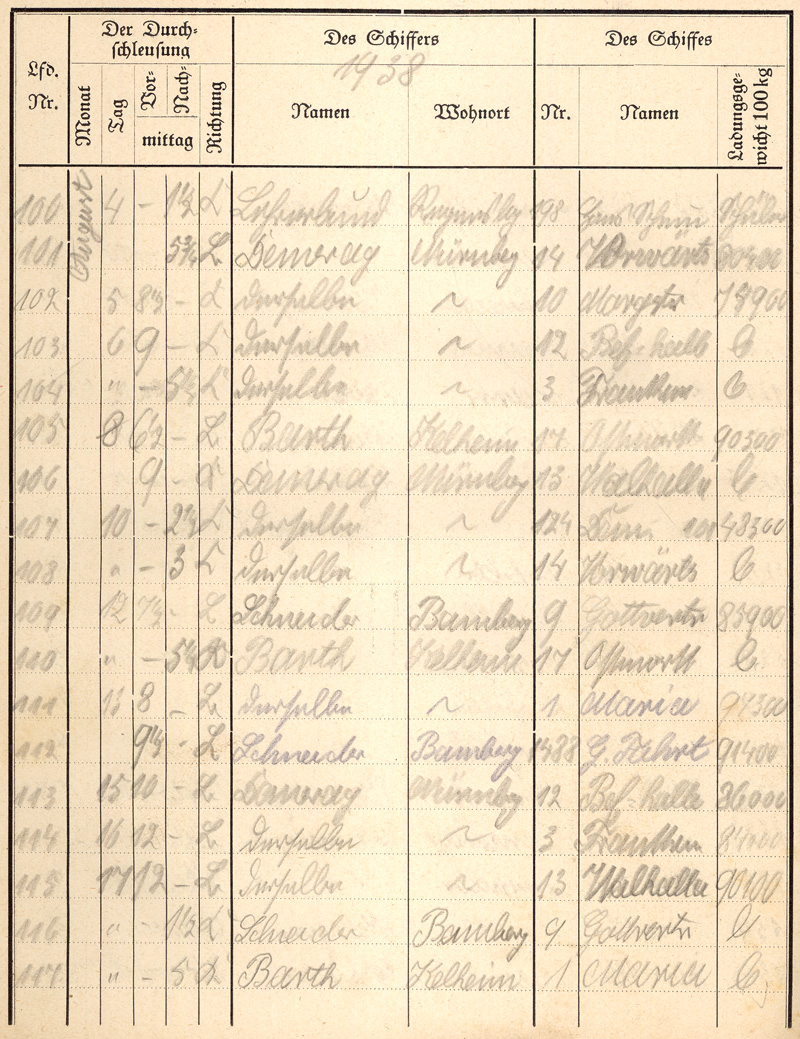 Lfd. Nr.
Der Durchschleusung
Des Schiffers
Des Schiffes
1938
Monat Tag Vor- Nach- mittag Richtung Namen Wohnort Nr. Namen Ladungsgewicht 100 kg
August
100 4 - 1½ L Lehrerbund Regensbg 198 Hans Schüler
101 5¾ L Demerag Nürnbg 14 Vorwärts 80400
102 5 - L derselbe ~ 10 75900
103 6 9 - L derselbe ~ 12 Bef-halle L
104 " - L derselbe ~ 3 Franken L
105 8 6½ - L Barth Kelheim 17 Ostmark 90300
106 9 - L Demerag Nürnberg 13 Walhalla L
107 10 - L derselbe ~ 124 Dem. 101 48300
108 " - 3 L derselbe ~ 14 Vorwärts L
109 12 7½ - L Schneider Bamberg 9 Gottvertr 85900
110 " - L Barth Kelheim 17 Ostmark L
111 13 8 - L derselbe ~ 1 Maria 94300
112 - L Schneider Bamberg 1388 G. Fahrt 91400
113 15 10 - L Demerag Nürnbg 12 Bef-halle 86000
114 16 12 - L derselbe ~ 3 Franken
115 17 12 - L derselbe ~ 13 Walhalla 90100
116 " - 1½ L Schneider Bamberg 9 Gottvertr L
117 " - 5 L Barth Kelheim 1 Maria L